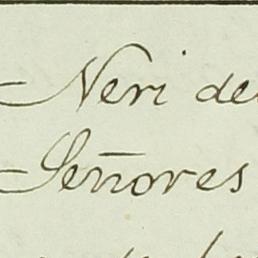 Neri de
Señores